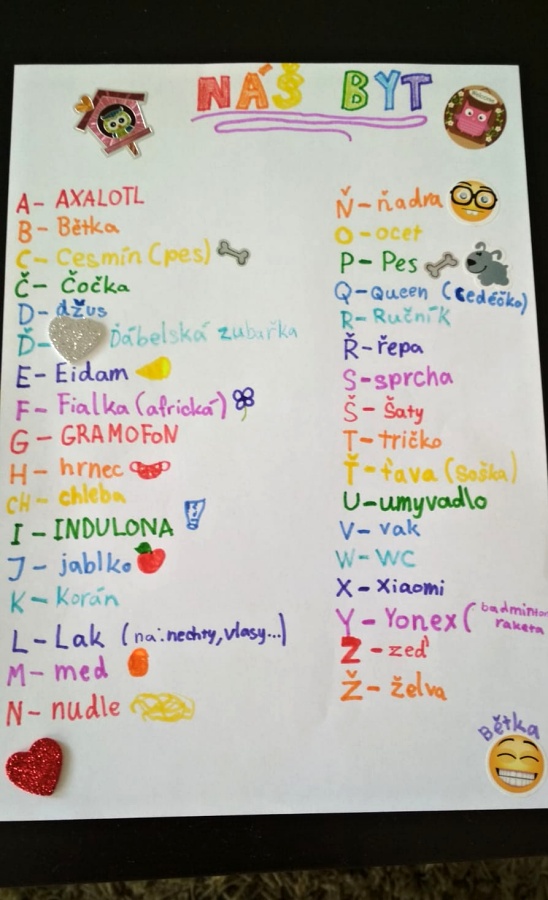 NÁŠ BYT
A- AXALOTL
B- Bětka
C- Cesmín (pes)
Č- Čočka
D- džus
Ď- Ďábelská zubařka
E- Eidam
F- Fialka (africká)
G- GRAMOFON
H- hrnec
CH- chleba
I- INDULONA
J- jablko
K- Korán
L- Lak (na:nechty, vlasy...)
M- med
N- nudle
Ň- ňadra
O- ocet
P- Pes
Q- Queen (cedéčko)
R- Ručník
Ř- řepa
S- sprcha
Š- Šaty
T- tričko
Ť- ťava (soška)
U- umyvadlo
V- vak
W- WC
X- Xiaomi
Y- Yonex (badminton
raketa
Z- zeď
Ž- želva
Bětka